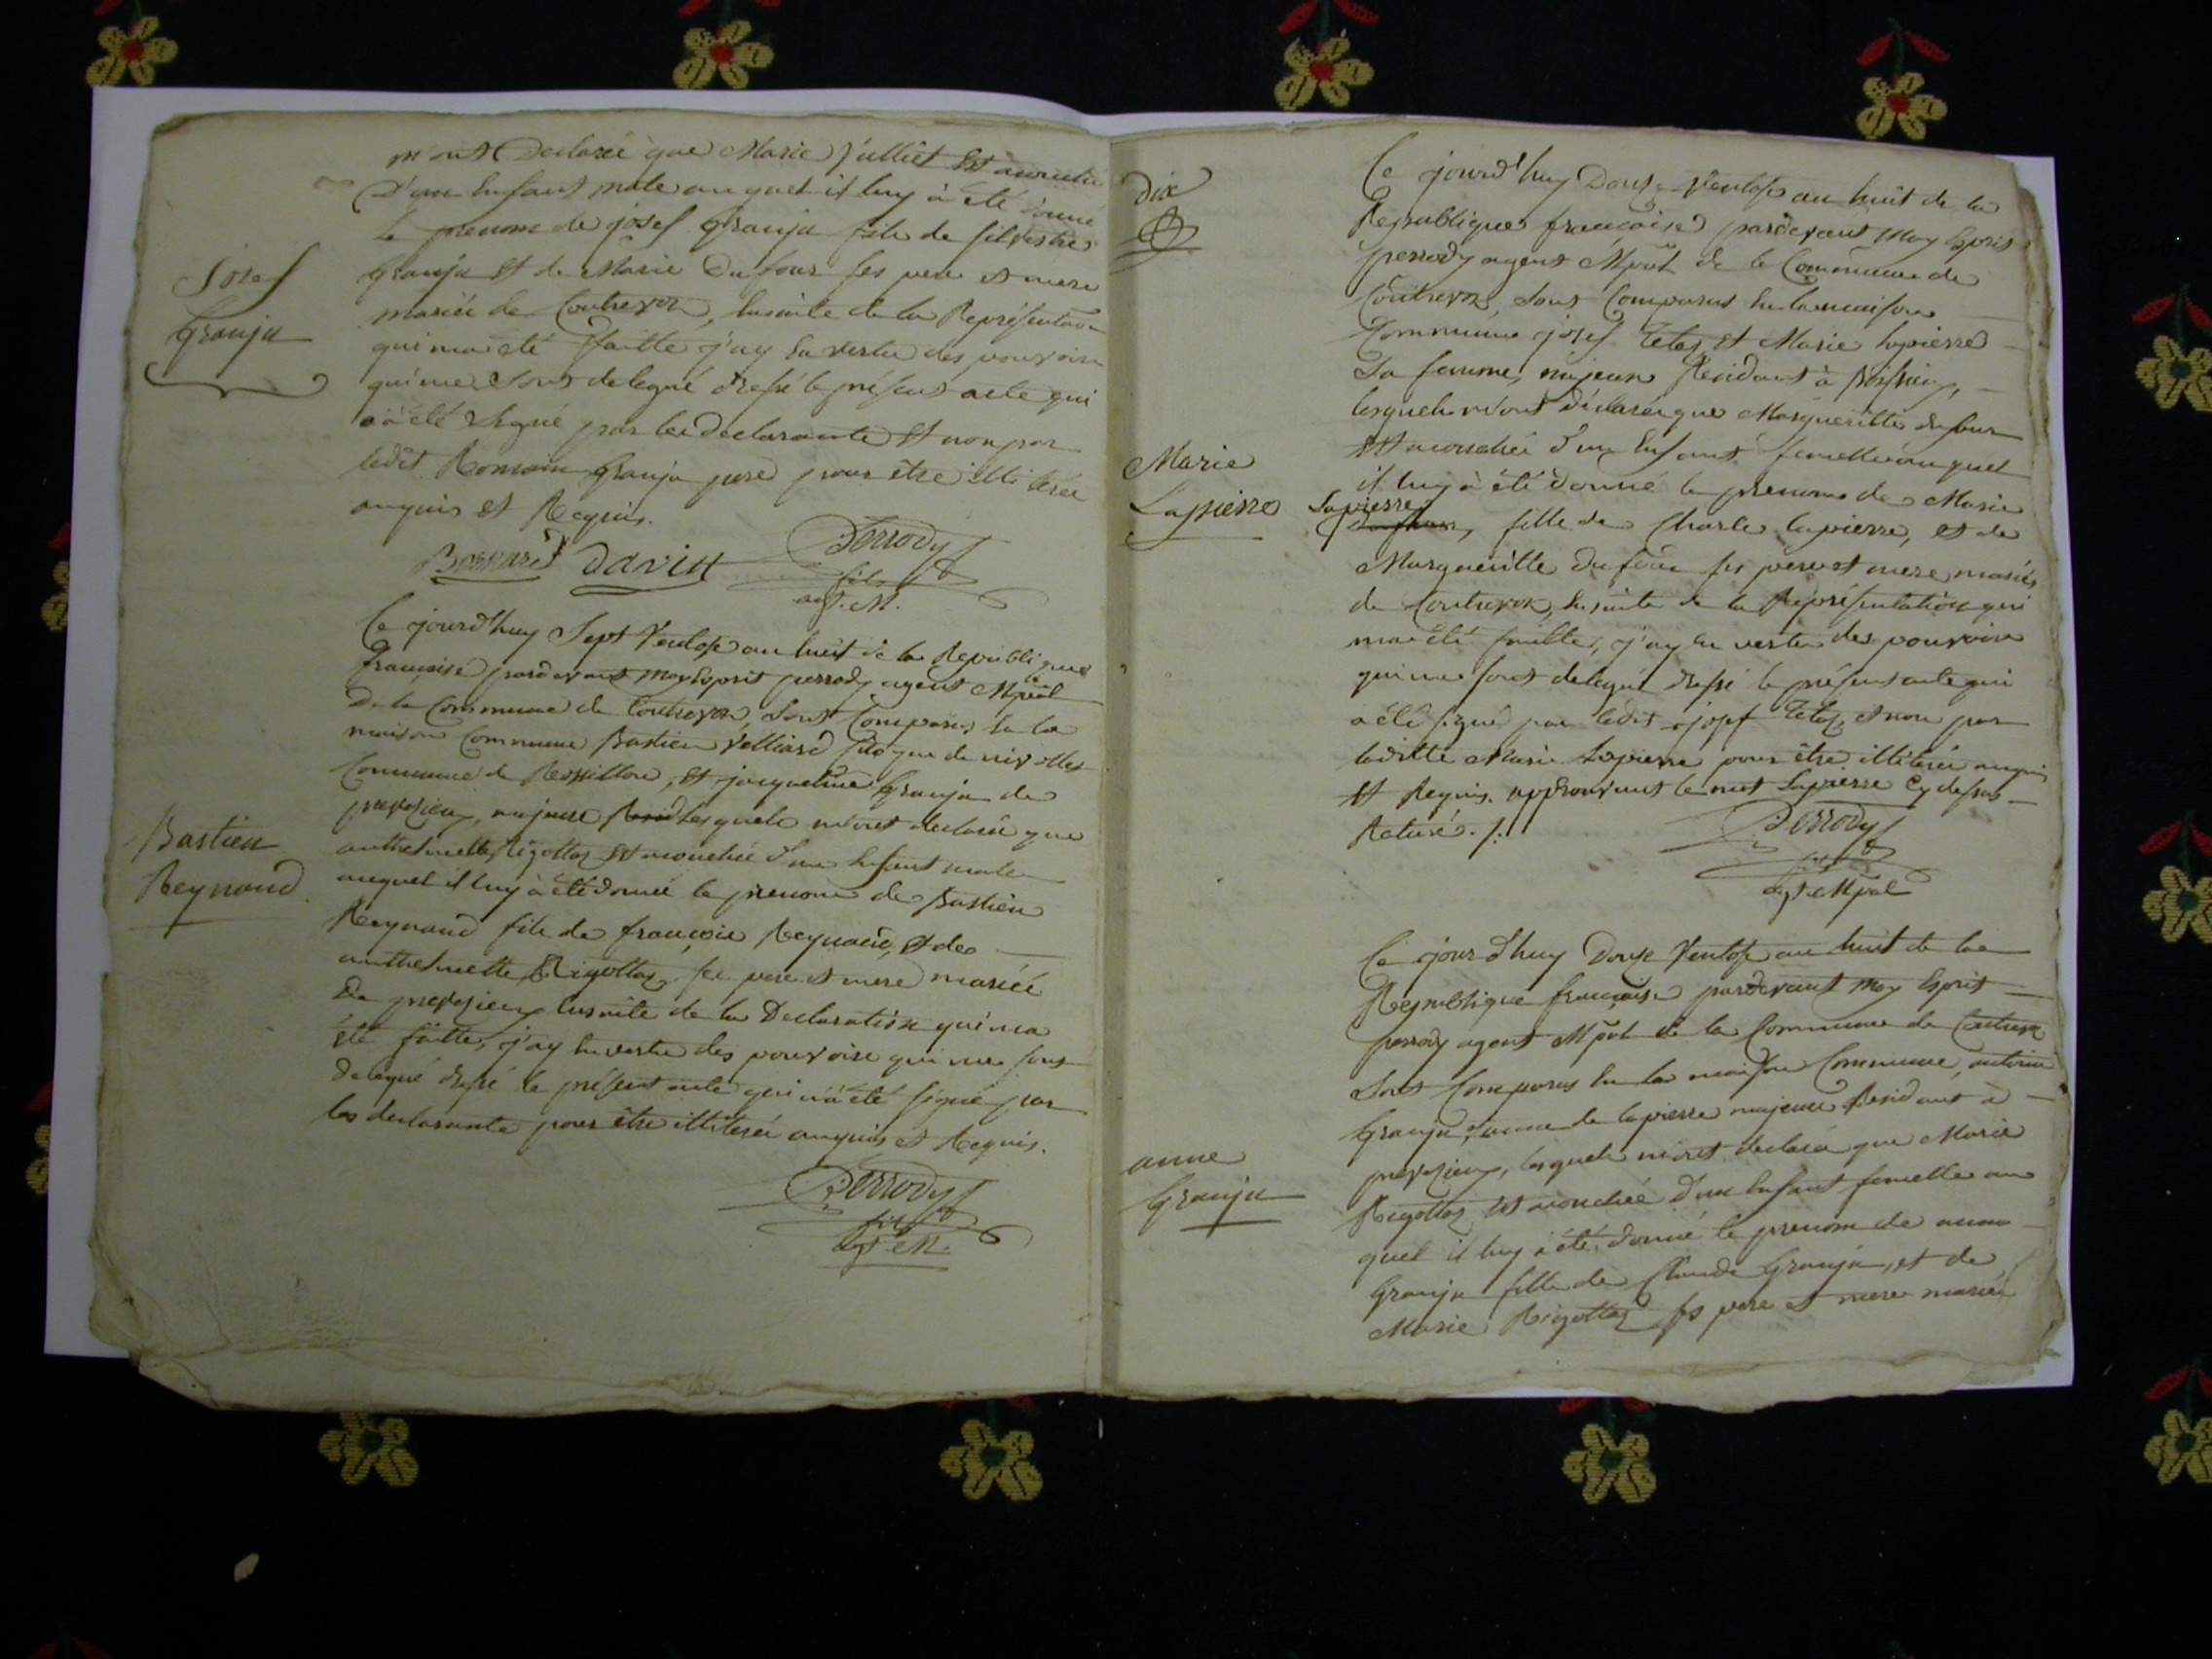 m'ont Declaré que Marie Julliet Est acouchée
D'un Enfant male auquel il luy à été donné
le prenom de josef Granju fils de silvestre
Josef
Granju
Granju Et de Marie Dufour ses pere et mere
mariés de Contrevoz, Ensuite de la Représentation
qui ma été faitte j'ay En vertu des pouvoirs
qui me sont delegué dressé le présent acte qui
à été signé par les declarants Et non par
ledit Romain Granju pere pour être illiteré
enquis et Requis.
Bonnard David Perrody
fils
agt. M.
Ce jourd'huy Sept Ventose an huit de la Republique
française pardevant moy Esprit perrody agent Mpal
De la Commune de Contrevoz sont Comparus En la
maison Commune Bastien velliard de
Commune de Rossillon, Et jacqueline Granju de
preveyzieu, majeurs lesquels m'ont declaré que
Bastien
Reynaud
anthelmette Rigollaz Est acouchée d'un Enfant male
auquel il luy à été donné le prenom de Bastien
Reynaud fils de françois Reynaud, Et de
anthelmette Rigollaz ses pere et mere mariés
De preveyzieu Ensuite de la Declaration qui ma
été faitte, j'ay En vertu des pouvoirs qui me sont
delegué dressé le présent acte qui n'à été signé par
les declarants pour être illiteré enquis et Requis.
Perrody
fils
agt. M.
Dix
Ce jourd'huy Douze Ventose an huit de la
Republique française pardevant moy Esprit
perrody agent Mpal de la Commune de
Contrevoz, sont Comparus En la maison
Commune josef Et Marie lapierre
Sa femme, majeurs Residants à
lesquels m'ont déclaré que Margueritte dufour
Est acouchée d'un Enfant femelle auquel
Marie
Lapierre
il luy à été donné le prenom de Marie
Lapierre
dufour, fille de Charle lapierre, et de
Margueritte Dufour ses pere et mere mariés
de Contrevoz, Ensuite de la Représentation qui
ma été faitte, j'ay En vertu des pouvoirs
qui me sont delegué dressé le présent acte qui
à été signé par ledit josef et non par
laditte Marie Lapierre pour être illiterée enquis
Et Requis. approuvant le mot Lapierre Cy dessus
Raturé. /.
Perrody
fils
agt. Mpal
Ce jourd'huy Douze Ventose an huit de la
Republique française pardevant moy Esprit
perrody agent Mpal de la Commune de Contrevoz
sont Comparus En la maison Commune, antoine
Granju, anne de lapierre majeurs Residants à
anne
Granju
preveyzieu, lesquels m'ont declaré que Marie
Rigollaz Est acouchée d'un Enfant femelle au
quel il luy à été donné le prenom de anne
Granju fille de Claude Granju, et de
Marie Rigollaz ses pere et mere mariés